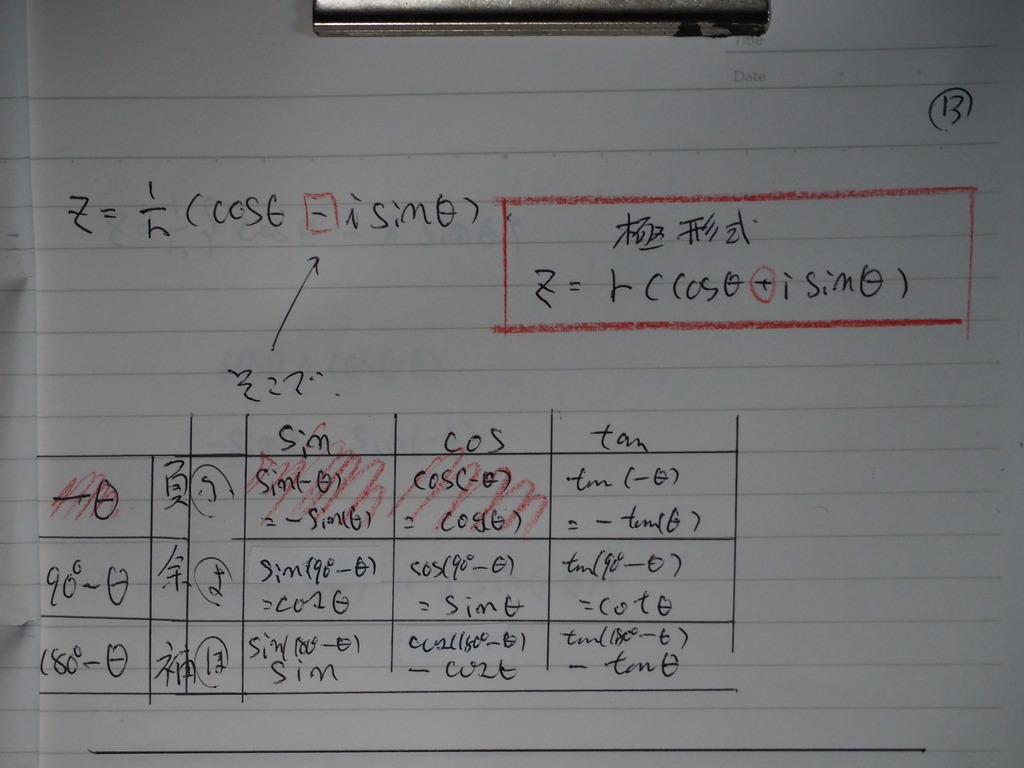 Title
Date
⑬
z = 1/r (cosθ - i sinθ)
極形式
z = r (cosθ + i sinθ)
そこで
sin cos tan
-θ 負 ㋫ sin(-θ) = -sin(θ) cos(-θ) = cos(θ) tan(-θ) = -tan(θ)
90°-θ 余 よ sin(90°-θ) = cosθ cos(90°-θ) = sinθ tan(90°-θ) = cotθ
180°-θ 補 ほ sin(180°-θ) sin cos(180°-θ) - cosθ tan(180°-θ) - tanθ